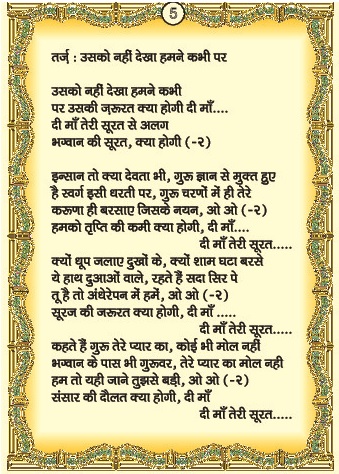 5
तर्ज़ : उसको नहीं देखा हमने कभी पर
उसको नहीं देखा हमने कभी
पर उसकी ज़रूरत क्या होगी दी माँ....
दी माँ तेरी सूरत से अलग
भग्वान की सूरत, क्या होगी (-२)
इन्सान तो क्या देवता भी, गुरू ज्ञान से मुक्त हुए
है स्वर्ग इसी धरती पर, गुरू चरणों में ही तेरे
करूणा ही बरसाए जिसके नयन, ओ ओ (-२)
हमको तृप्ति की कमी क्या होगी, दी माँ....
दी माँ तेरी सूरत.....
क्यों धूप जलाए दुखों के, क्यों शाम घटा बरसे
ये हाथ दुआओं वाले, रहते हैं सदा सिर पे
तू है तो अंधेरेपन में हमें, ओ ओ (-२)
सूरज की जरुरत क्या होगी, दी माँ .....
दी माँ तेरी सूरत.....
कहते हैं गुरू तेरे प्यार का, कोई भी मोल नहीं
भग्वान के पास भी गुरूवर, तेरे प्यार का मोल नही
हम तो यही जाने तुझसे बड़ी, ओ ओ (-२)
संसार की दौलत क्या होगी, दी माँ
दी माँ तेरी सूरत.....